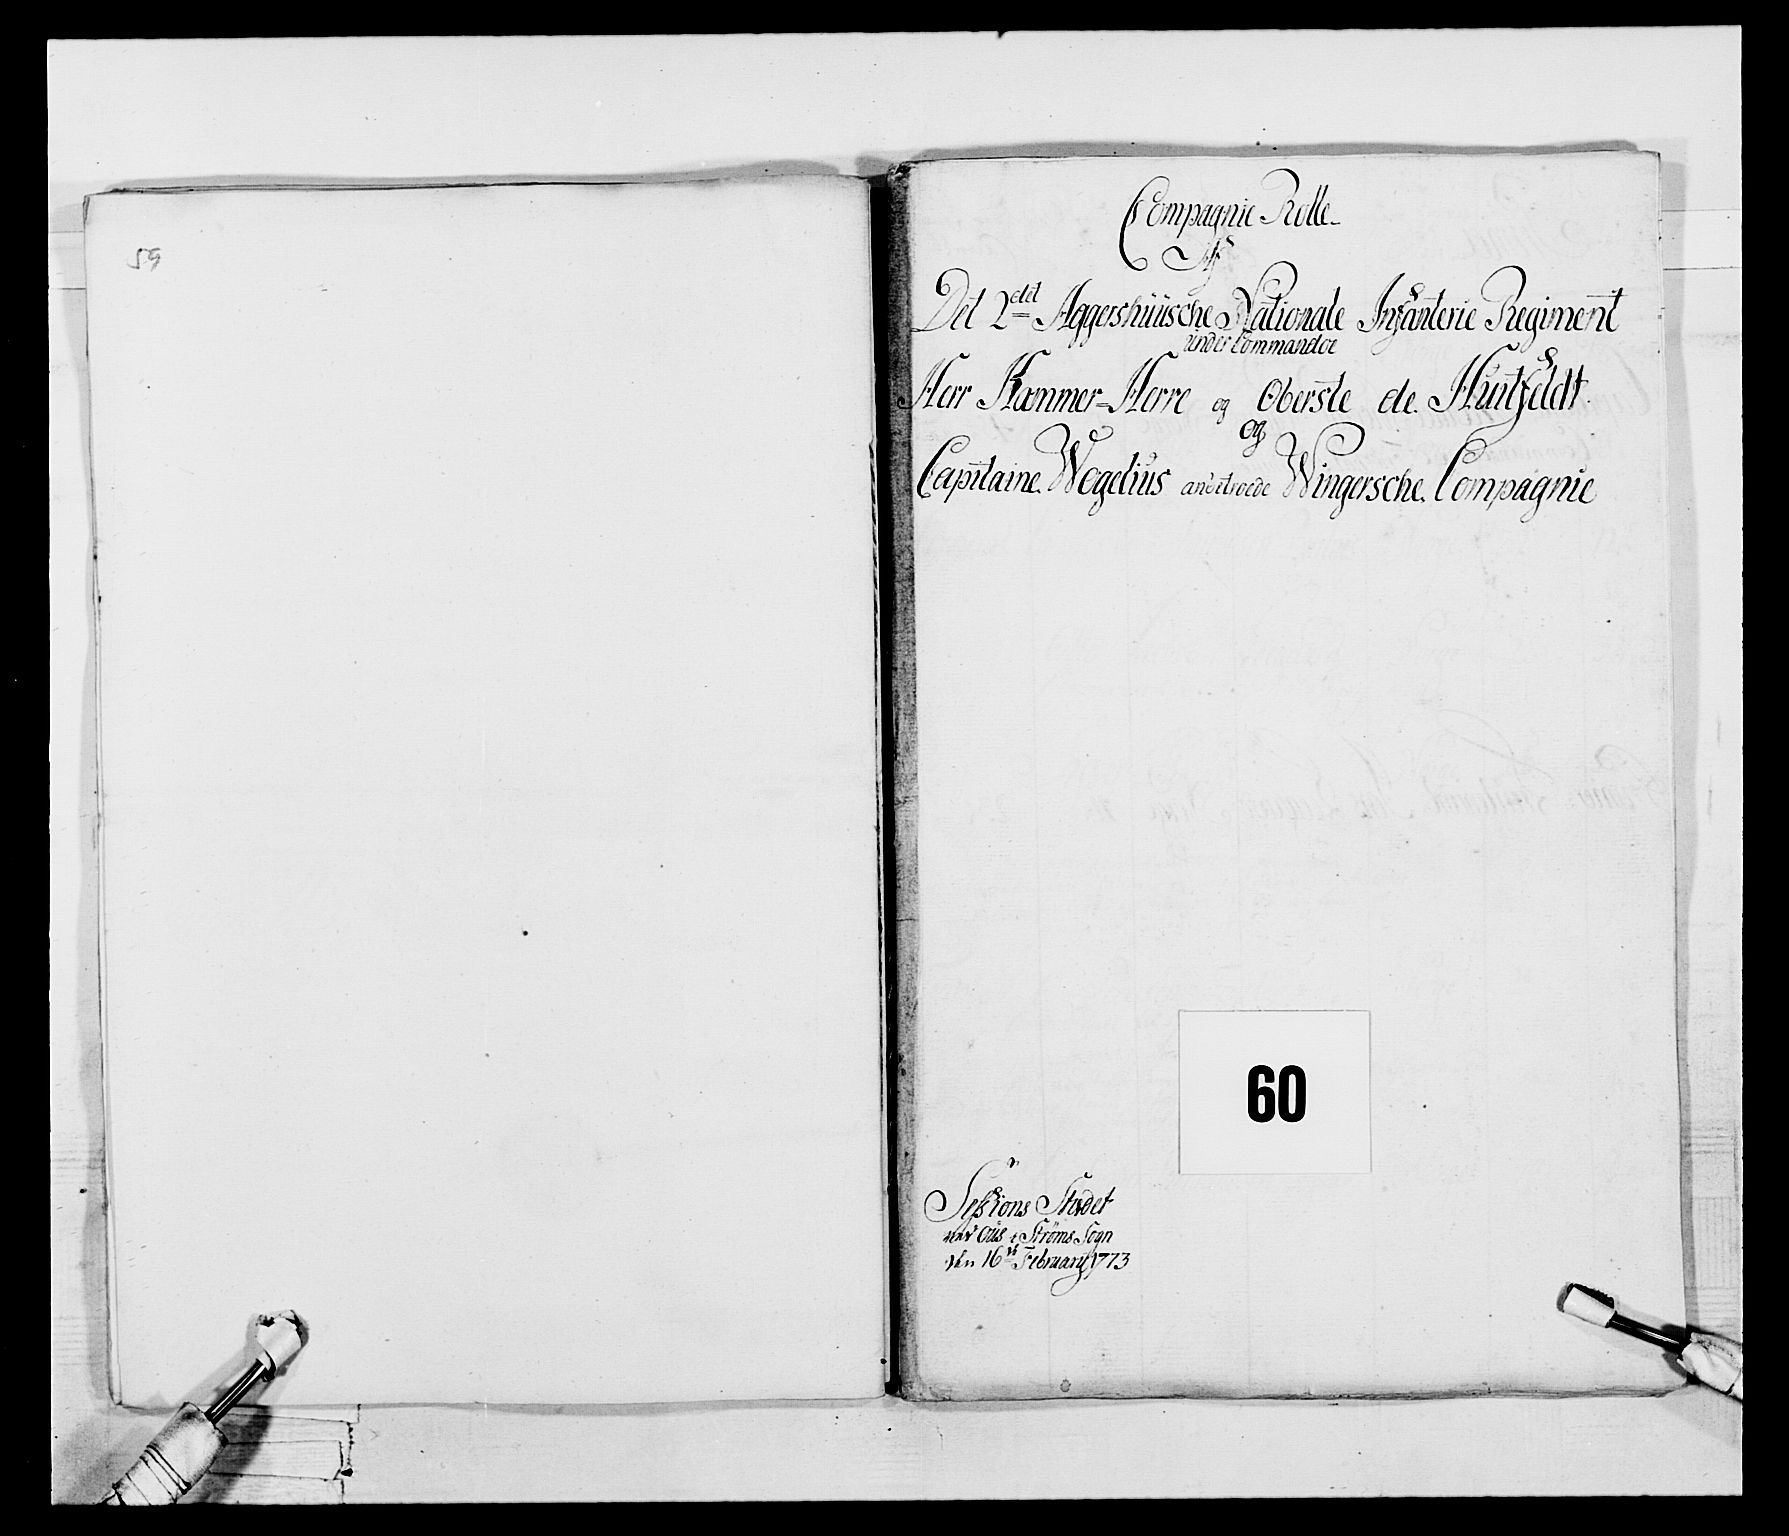 59
Compagnie Rolle
Af
Det 2det Aggershüüsche Nationale Infanterie Regiment
under Commandoe
Herr Kammer-Herre og Oberste de Huitfeldt
og
Capitaine Wegelius anbetroede Wingersche Compagnie
60
Sessions Stedet
ved Ous i Strøms Sogn
den 16de February 1773